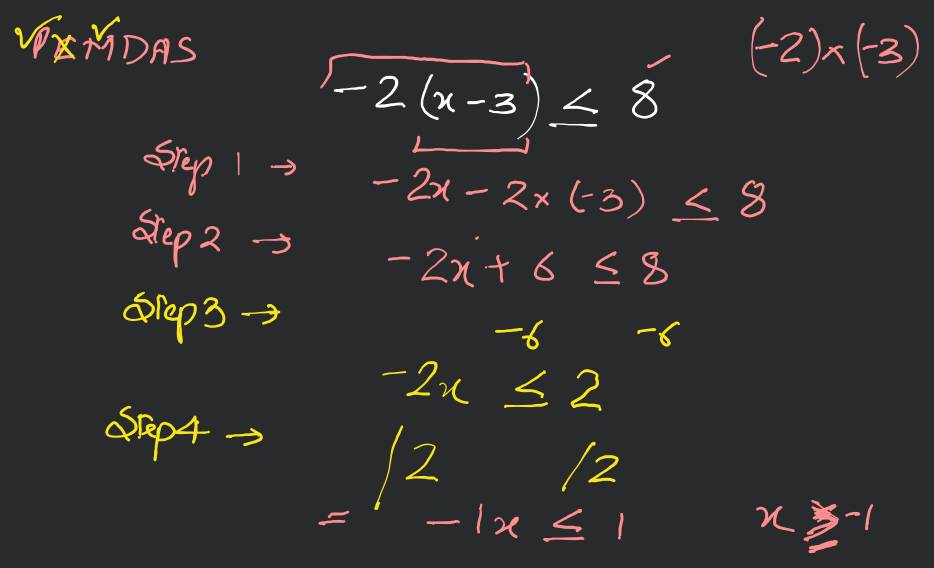 PEMDAS
(-2)×(-3)
-2(x-3) ≤ 8
Step 1 → -2x - 2×(-3) ≤ 8
Step 2 → -2x + 6 ≤ 8
Step 3 → -6 -6
-2x ≤ 2
Step 4 → /2 /2
= -1x ≤ 1
x ≥ -1